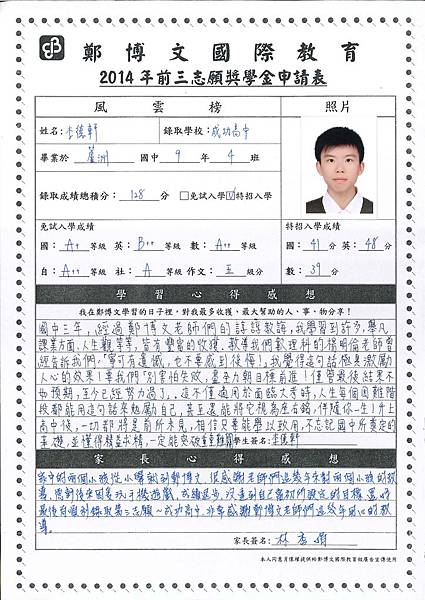 鄭博文國際教育
2014年前三志願獎學金申請表
風雲榜 照片
姓名: 德軒 錄取學校:成功高中
畢業於 蘆洲 國中 9 年 4 班
錄取成績總積分: 128 分 □免試入學☑特招入學
免試入學成績 特招入學成績
國: A+ 等級 英: B++ 等級 數: A+ 等級 國: 41 分 英: 48 分
自: A++ 等級 社: A 等級 作文: 五 級分 數: 39 分
學習心得感想
我在鄭博文學習的日子裡,對我最多收獲、最大幫助的人、事、物分享!
國中三年,經過鄭博文老師們的諄諄教誨,我學習到許多,舉凡
課業方面、人生觀等等,皆有豐富的收獲。教導我們數理科的 老師曾
經告訴我們:「寧可有遺憾,也不要感到後悔!」我覺得這句話極具激勵
人心的效果!要我們「別害怕失敗,盡全力朝目標前進!僅管最後結果不
如預期,至少已經努力過了。」這不僅適用於面臨大考時,人生每個困難階
段都能用這句話來勉勵自己,甚至還能將它視為座右銘,伴隨你一生!升上
高中後,一切都將是前所未見,相信只要能學以致用,不忘記國中所奠定的
基礎,並懂得精益求精,一定能突破重重難關 學生簽名: 德軒
家長心得感想
兩個小孩從小 到鄭博文,很感謝老師們這幾年來對兩個小孩的教
導, 玩手機遊戲,成績退步,沒達到自己當初所設定的目標,還好
最後有順利錄取第三志願~成功高中,非常感謝鄭博文老師們這幾年用心的教
導。
家長簽名: 林
本人同意肖像權提供給鄭博文國際教育做廣告宣傳使用